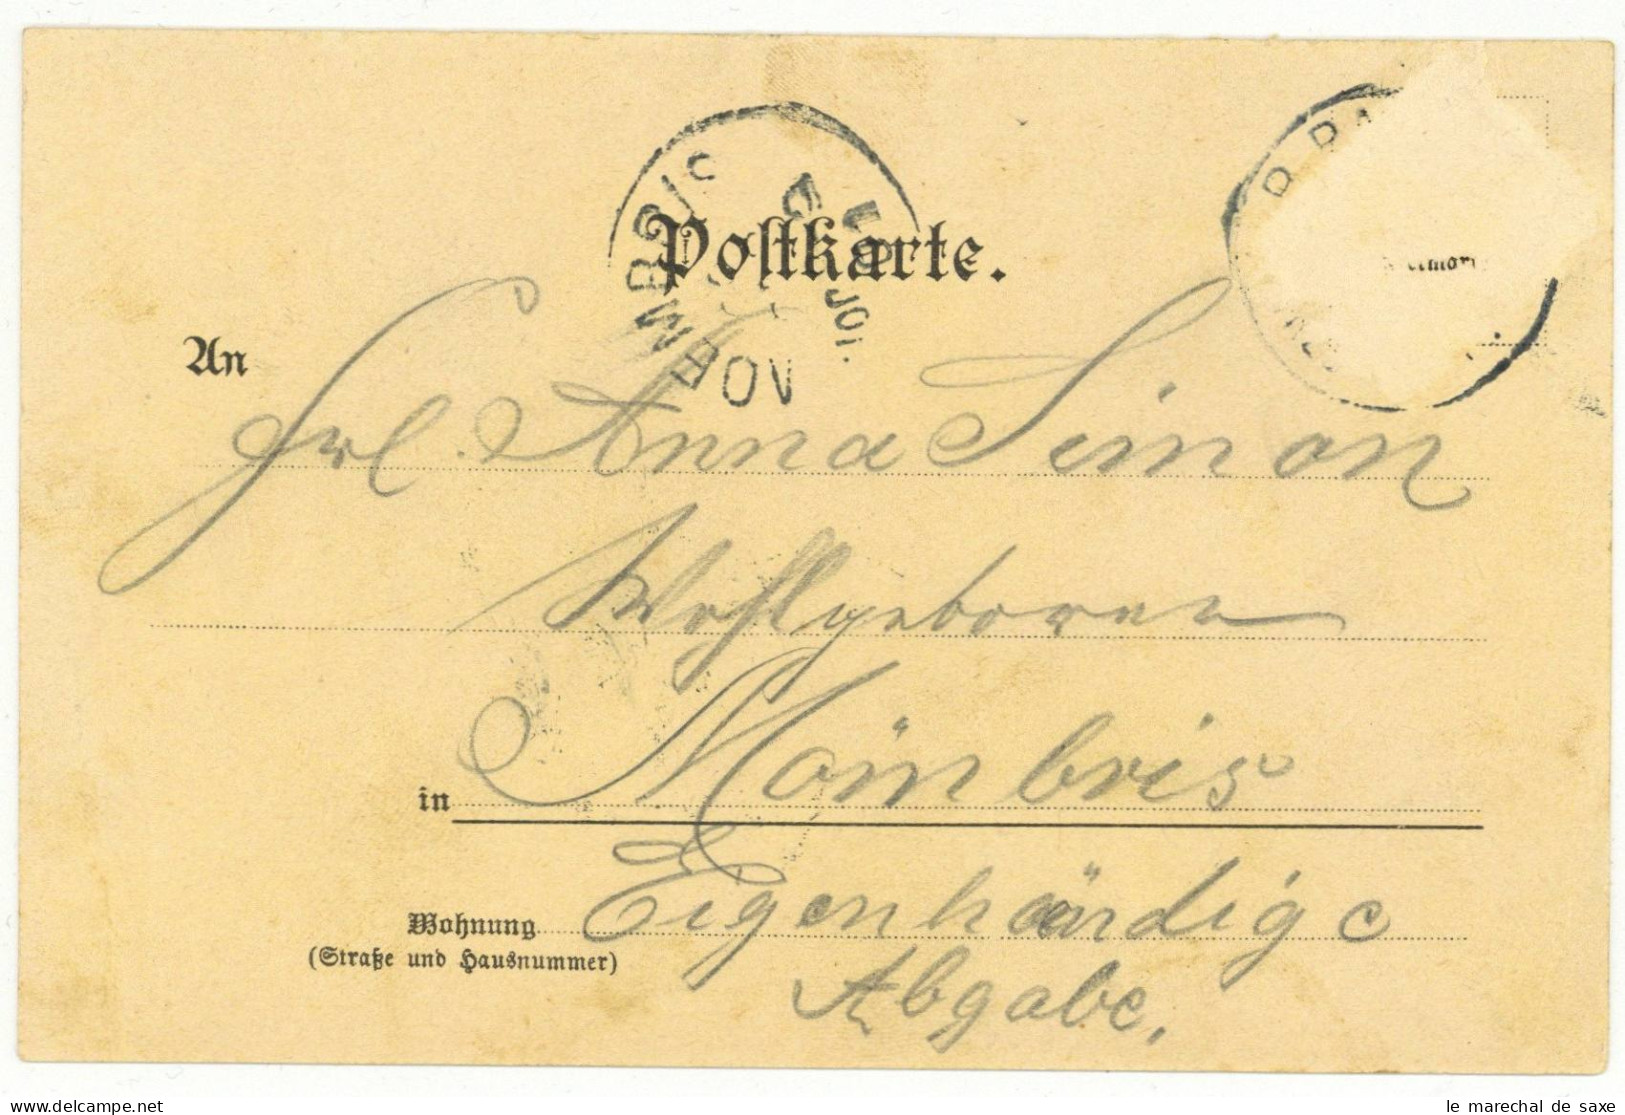 Postkarte.
MOEMBRIS
JUL
An
Frl. Anna Simon
Wohlgeboren
in Mömbris
Wohnung Eigenhändige
(Straße und Hausnummer)
Abgabe.
delcampe.net
le marechal de saxe